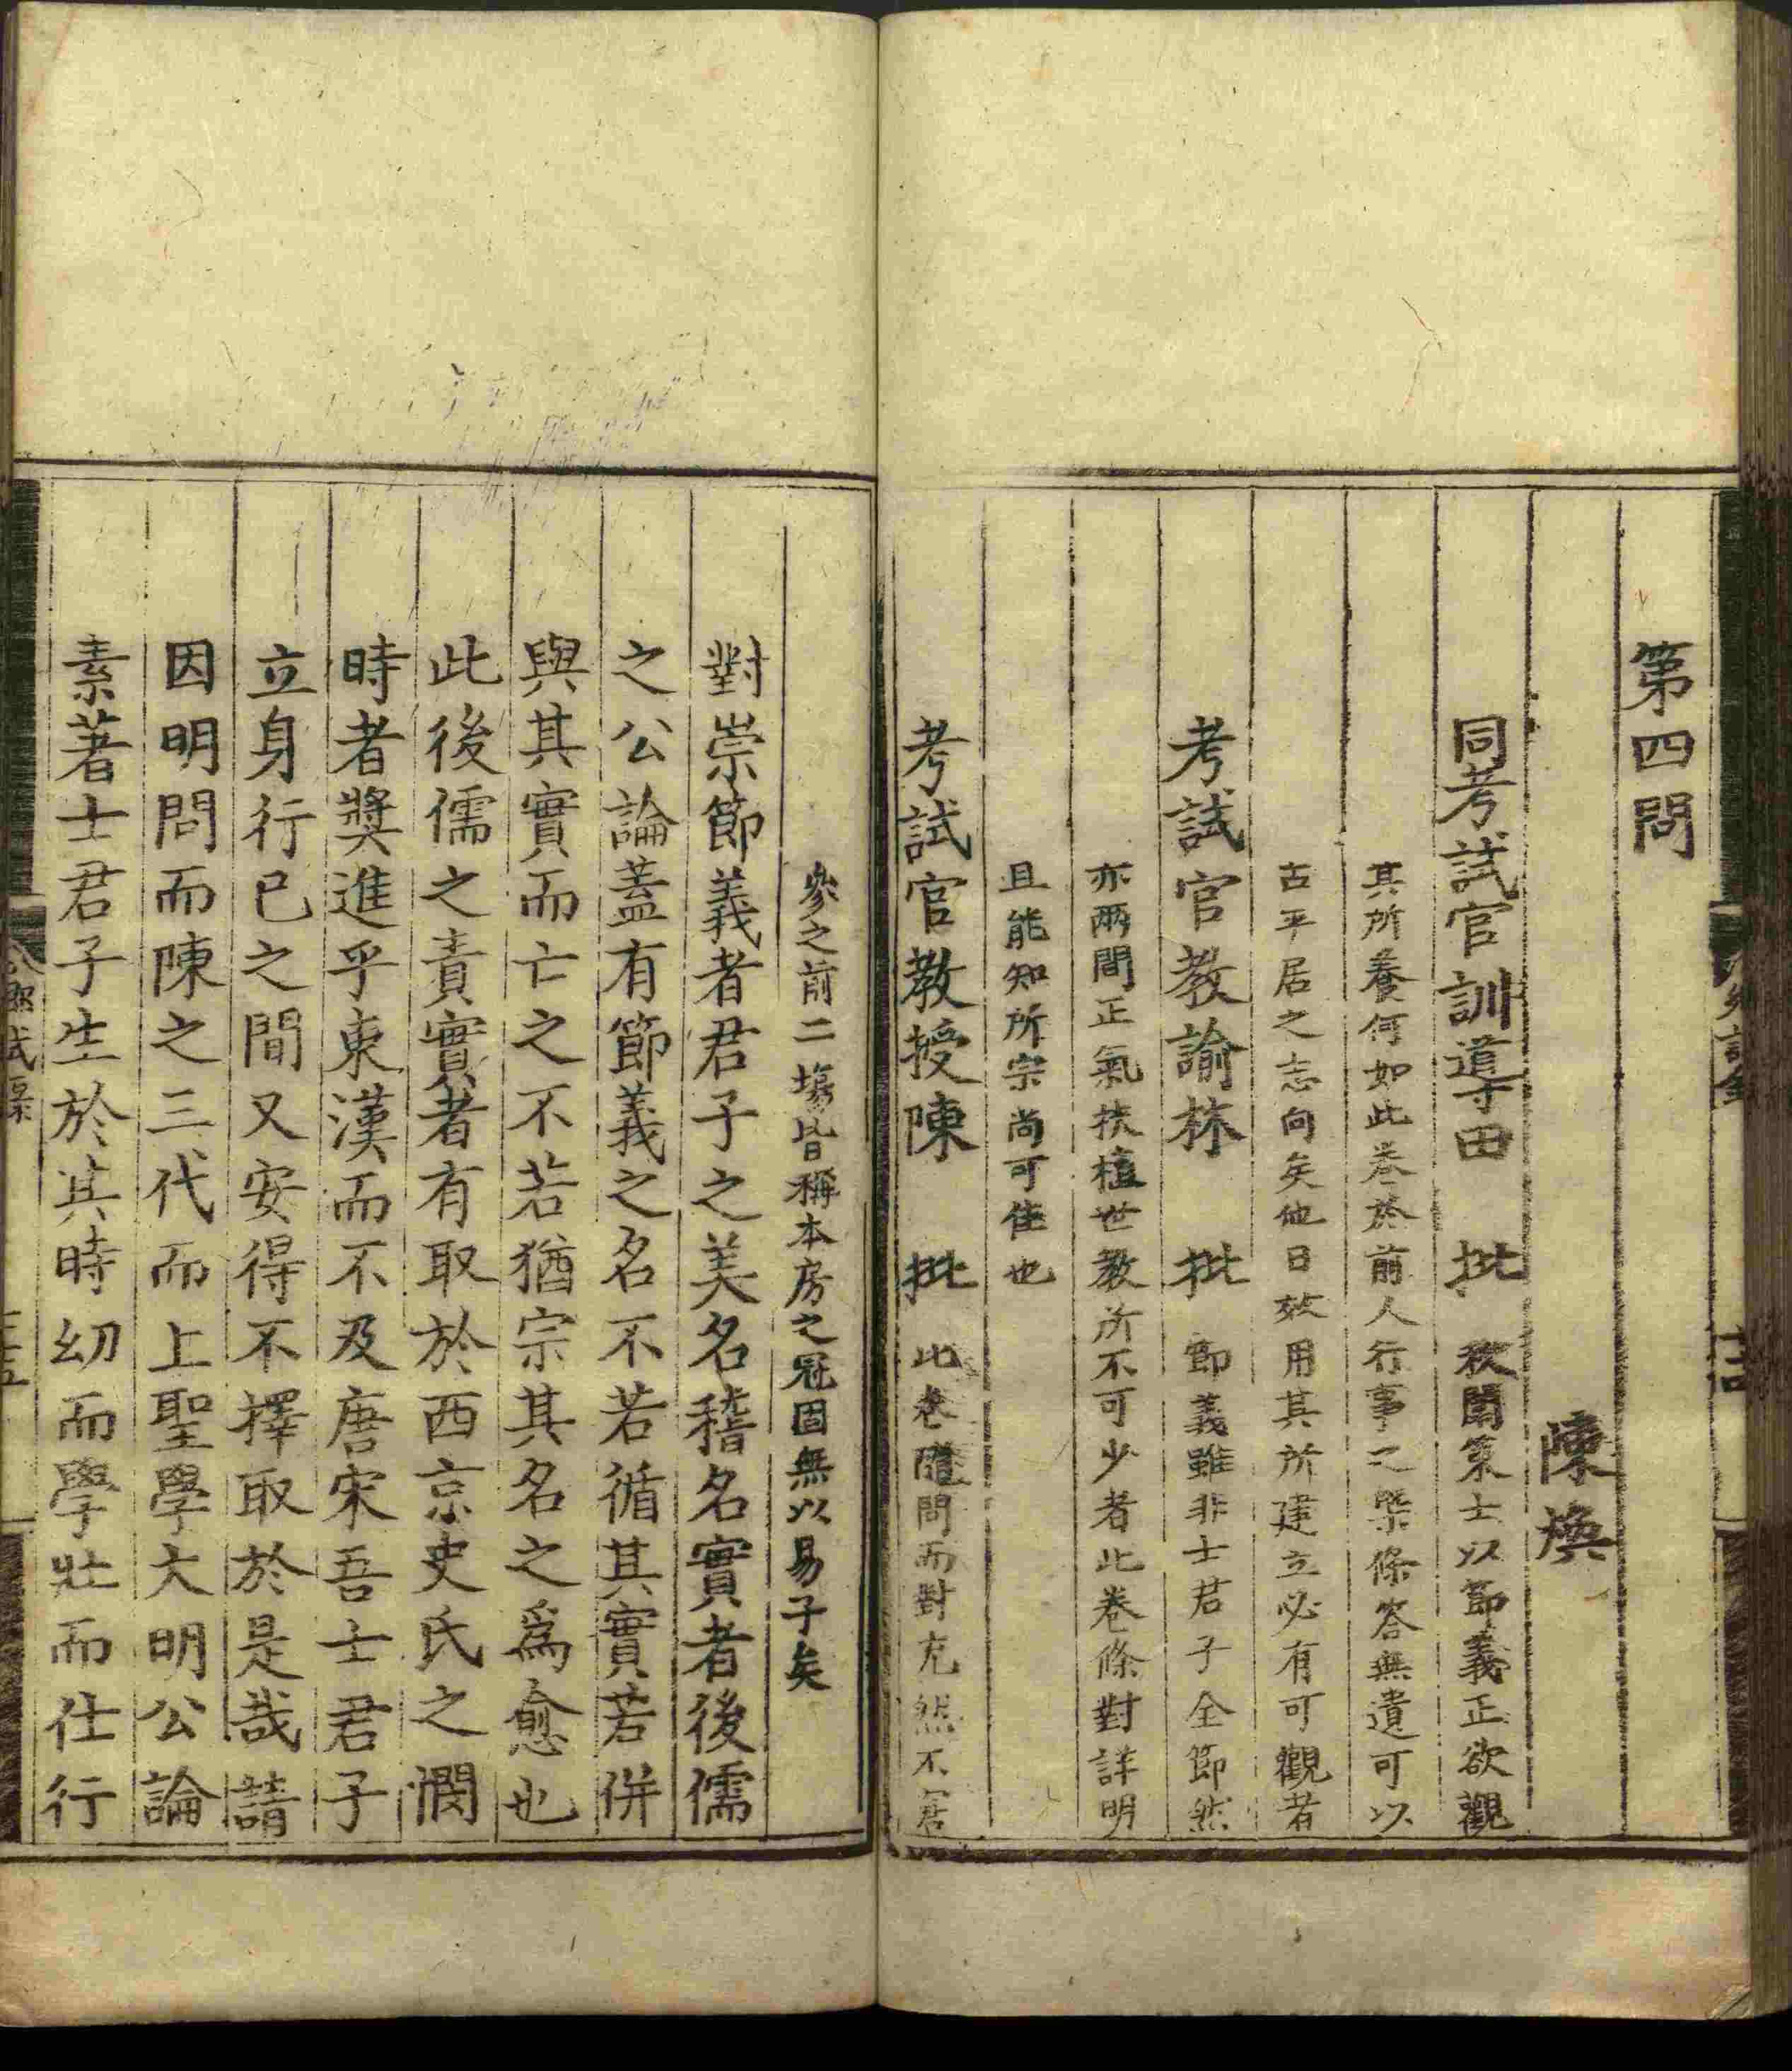 第四問
陳煥
同考試官訓導田　批　秋闈策士以節義正欲觀
其所養何如此卷於前人行事之槩條答無遺可以
古平居之志向矣他日效用其所建立必有可觀者
考試官教諭林　批　節義雖非士君子全節然
亦兩間正氣扶植世教所不可少者此卷條對詳明
且能知所宗尚可佳也
考試官教授陳　批　此卷隨問而對充然不窘
參之前二塲皆稱本房之冠固無以易子矣
對崇節義者君子之美名稽名實者後儒
之公論蓋有節義之名不若循其實若併
與其實而亡之不若猶宗其名之爲愈也
此後儒之責實者有取於西京史氏之憫
時者奬進乎東漢而不及唐宋吾士君子
立身行已之間又安得不擇取於是哉請
因明問而陳之三代而上聖學大明公論
素著士君子生於其時幼而學壯而仕行